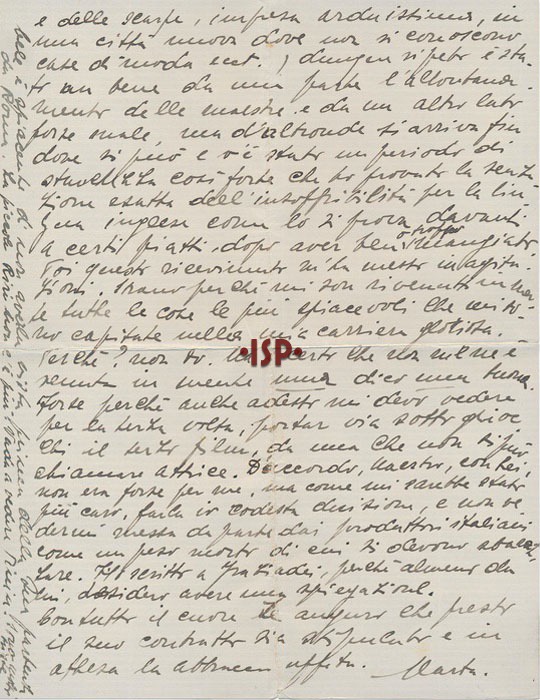 e delle scarpe, impresa arduissima, in
una città nuova dove non si conoscono
case di moda ecct.) dunque ripeto è sta-
to un bene da una parte l'allontana-
mento delle maestre e da un altro lato
forse male, ma d'altronde si arriva fin
dove si può e v'è stato un periodo di
così forte che ho provato la sensa
zione esatta dell'insoffribilità per la lin
gua inglese come lo si prova davanti
a certi piatti, dopo aver ben o troppo mangiato
Poi questo ricevimento m'ha messo in agita-
zioni. Strano perché mi son rivenute in men
te tutte le cose le più spiacevoli che mi so-
no capitate nella mia carriera gloriosa.
Perché? non so. certo che non me ne è
venuta in mente una dico una buona.
Forse perché anche adesso mi devo vedere
per la terza volta, portar via sotto gli oc
chi il terzo film, da una che non si può
chiamare attrice. D'accordo, Maestro, con Lei,
non era forse per me, ma come mi sarebbe stato
più caro, farla io codesta decisione, e non ve
dermi messa da parte dai produttori italiani
come un peso morto di cui si devono
Ho scritto a Graziadei, perché almeno da
lui, desidero avere una spiegazione.
Con tutto il cuore Le auguro che presto
il suo contratto sia stipulato e in
attesa la abbraccio affett.
Marta.
bele è spiacente di non averla vista prima della sua partenza
da Roma. La piccola non c'è più.
·ISP·